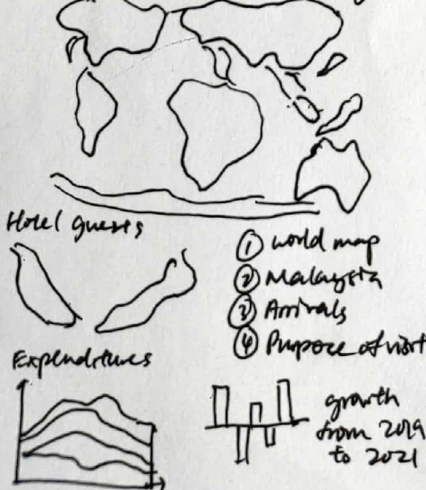 Hotel guests
① world map
② Malaysia
③ Arrivals
④ Purpose of visit
Expenditures
growth
from 2019
to 2021